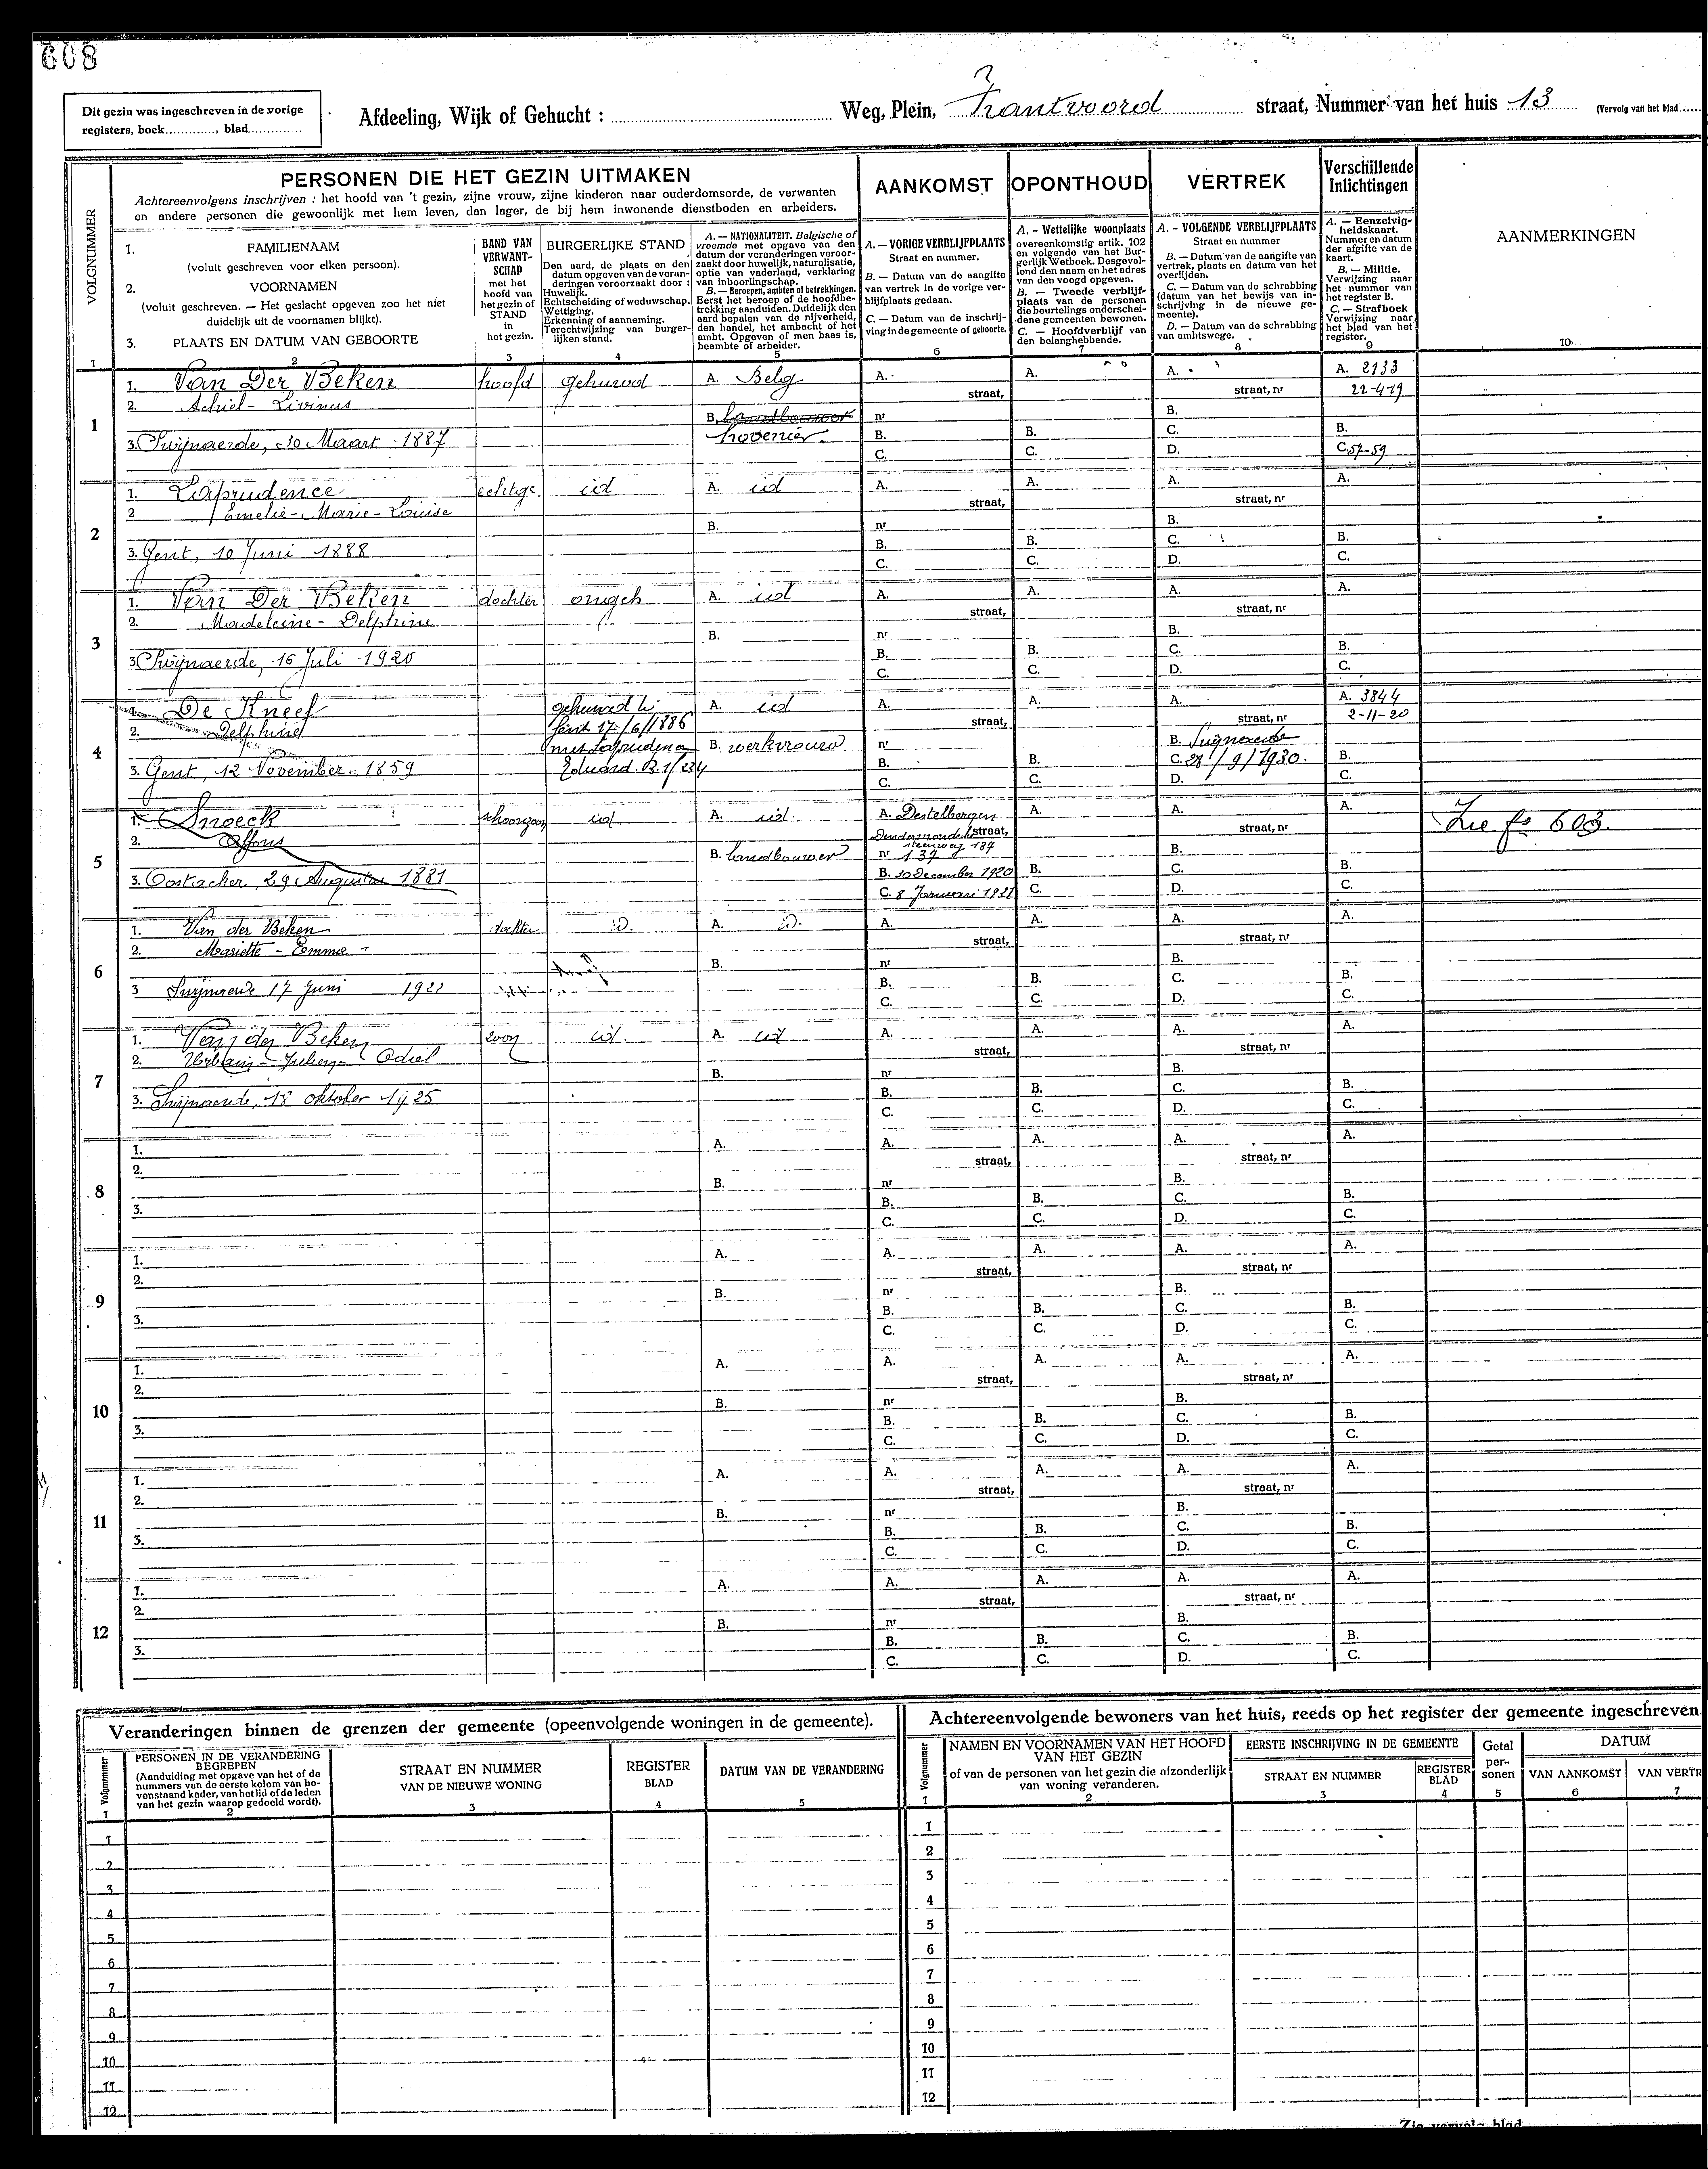 608
Dit gezin was ingeschreven in de vorige
registers, boek............, blad..............
Afdeeling, Wijk of Gehucht :
Weg, Plein, Zrantvoord straat, Nummer van het huis 13 (Vervolg van het blad......
VOLGNUMMER
PERSONEN DIE HET GEZIN UITMAKEN
Achtereenvolgens inschrijven : het hoofd van 't gezin, zijne vrouw, zijne kinderen naar ouderdomsorde, de verwanten
en andere personen die gewoonlijk met hem leven, dan lager, de bij hem inwonende dienstboden en arbeiders.
AANKOMST
OPONTHOUD
VERTREK
Verschillende
Inlichtingen
AANMERKINGEN
1. FAMILIENAAM
(voluit geschreven voor elken persoon).
2. VOORNAMEN
(voluit geschreven. — Het geslacht opgeven zoo het niet
duidelijk uit de voornamen blijkt).
3. PLAATS EN DATUM VAN GEBOORTE
BAND VAN
VERWANT-
SCHAP
met het
hoofd van
het gezin of
STAND
in
het gezin.
BURGERLIJKE STAND
Den aard, de plaats en den
datum opgeven van de veran-
deringen veroorzaakt door :
Huwelijk.
Echtscheiding of weduwschap.
Wettiging.
Erkenning of aanneming.
Terechtwijzing van burger-
lijken stand.
A. — NATIONALITEIT. Belgische of
vreemde met opgave van den
datum der veranderingen veroor-
zaakt door huwelijk, naturalisatie,
optie van vaderland, verklaring
van inboorlingschap.
B. — Beroepen, ambten of betrekkingen.
Eerst het beroep of de hoofdbe-
trekking aanduiden. Duidelijk den
aard bepalen van de nijverheid,
den handel, het ambacht of het
ambt. Opgeven of men baas is,
beambte of arbeider.
A. — VORIGE VERBLIJFPLAATS
Straat en nummer.
B. — Datum van de aangifte
van vertrek in de vorige ver-
blijfplaats gedaan.
C. — Datum van de inschrij-
ving in de gemeente of geboorte.
A. - Wettelijke woonplaats
overeenkomstig artik. 102
en volgende van het Bur-
gerlijk Wetboek. Desgeval-
lend den naam en het adres
van den voogd opgeven.
B. — Tweede verblijf-
plaats van de personen
die beurtelings onderschei-
dene gemeenten bewonen.
C. — Hoofdverblijf van
den belanghebbende.
A. - VOLGENDE VERBLIJFPLAATS
Straat en nummer
B. — Datum van de aangifte van
vertrek, plaats en datum van het
overlijden.
C. — Datum van de schrabbing
(datum van het bewijs van in-
schrijving in de nieuwe ge-
meente).
D. — Datum van de schrabbing
van ambtswege.
A. — Eenzelvig-
heidskaart.
Nummer en datum
der afgifte van de
kaart.
B. — Militie.
Verwijzing naar
het nummer van
het register B.
C. — Strafboek
Verwijzing naar
het blad van het
register.
1 2 3 4 5 6 7 8 9 10
1
1. Van Der Beken hoofd gehuwd A. Belg A. A. A. A. 2133
2. Achiel - Livinus straat, straat, nr 22-4-19
B. Landbouwer nr B.
hovenier.
3. Swijnaerde, 30 Maart 1887 B. B. C. B.
C. C. D. C. 57-59
2
1. Laprudence echtge id A. id A. A. A. A.
2 Emelie - Marie - Louise straat, straat, nr
B. nr B.
3. Gent, 10 Juni 1888 B. B. C. B.
C. C. D. C.
3
1. Van Der Beken dochter ongeh A. id A. A. A. A.
2. Madeleine - Delphine straat, straat, nr
B. nr B.
3 Swijnaerde, 16 Juli 1920 B. B. C. B.
C. C. D. C.
4
1. De Kneef gehuwd te A. id A. A. A. A. 3844
2. Delphine Gent 17/6/1886 straat, straat, nr 2-11-20
met Laprudence B. werkvrouw nr B. Swijnaerde
3. Gent, 12 November 1859 Eduard. B. 1/234 B. B. C. 28/9/1930. B.
C. C. D. C.
5
1. Snoeck schoonzoon id. A. id. A. Destelbergen A. A. A. Zie fo 603.
2. Alfons Dendermondsche straat, straat, nr
steenweg 137
B. landbouwer nr 137 B.
3. Oostacker, 29 Augustus 1881 B. 30 December 1920 B. C. B.
C. 8 Januari 1921 C. D. C.
6
1. Van der Beken dochter iD. A. iD. A. A. A. A.
2. Mariette - Emma straat, straat, nr
B. nr B.
3 Swijnaerde 17 Juni 1922 B. B. C. B.
C. C. D. C.
7
1. Van der Beken zoon id. A. id A. A. A. A.
2. Urbain - Julien - Odiel straat, straat, nr
B. nr B.
3. Swijnaerde, 18 oktober 1925 B. B. C. B.
C. C. D. C.
8
1. A. A. A. A. A.
2. straat, straat, nr
B. nr B.
3. B. B. C. B.
C. C. D. C.
9
1. A. A. A. A. A.
2. straat, straat, nr
B. nr B.
3. B. B. C. B.
C. C. D. C.
10
1. A. A. A. A. A.
2. straat, straat, nr
B. nr B.
3. B. B. C. B.
C. C. D. C.
11
1. A. A. A. A. A.
2. straat, straat, nr
B. nr B.
3. B. B. C. B.
C. C. D. C.
12
1. A. A. A. A. A.
2. straat, straat, nr
B. nr B.
3. B. B. C. B.
C. C. D. C.
Veranderingen binnen de grenzen der gemeente (opeenvolgende woningen in de gemeente).
Volgnummer
PERSONEN IN DE VERANDERING
BEGREPEN
(Aanduiding met opgave van het of de
nummers van de eerste kolom van bo-
venstaand kader, van het lid of de leden
van het gezin waarop gedoeld wordt).
STRAAT EN NUMMER
VAN DE NIEUWE WONING
REGISTER
BLAD
DATUM VAN DE VERANDERING
1 2 3 4 5
1
2
3
4
5
6
7
8
9
10
11
12
Achtereenvolgende bewoners van het huis, reeds op het register der gemeente ingeschreven.
Volgnummer
NAMEN EN VOORNAMEN VAN HET HOOFD
VAN HET GEZIN
of van de personen van het gezin die afzonderlijk
van woning veranderen.
EERSTE INSCHRIJVING IN DE GEMEENTE
STRAAT EN NUMMER
REGISTER
BLAD
Getal
per-
sonen
DATUM
VAN AANKOMST
VAN VERTR
1 2 3 4 5 6 7
1
2
3
4
5
6
7
8
9
10
11
12
Zie vervolg blad